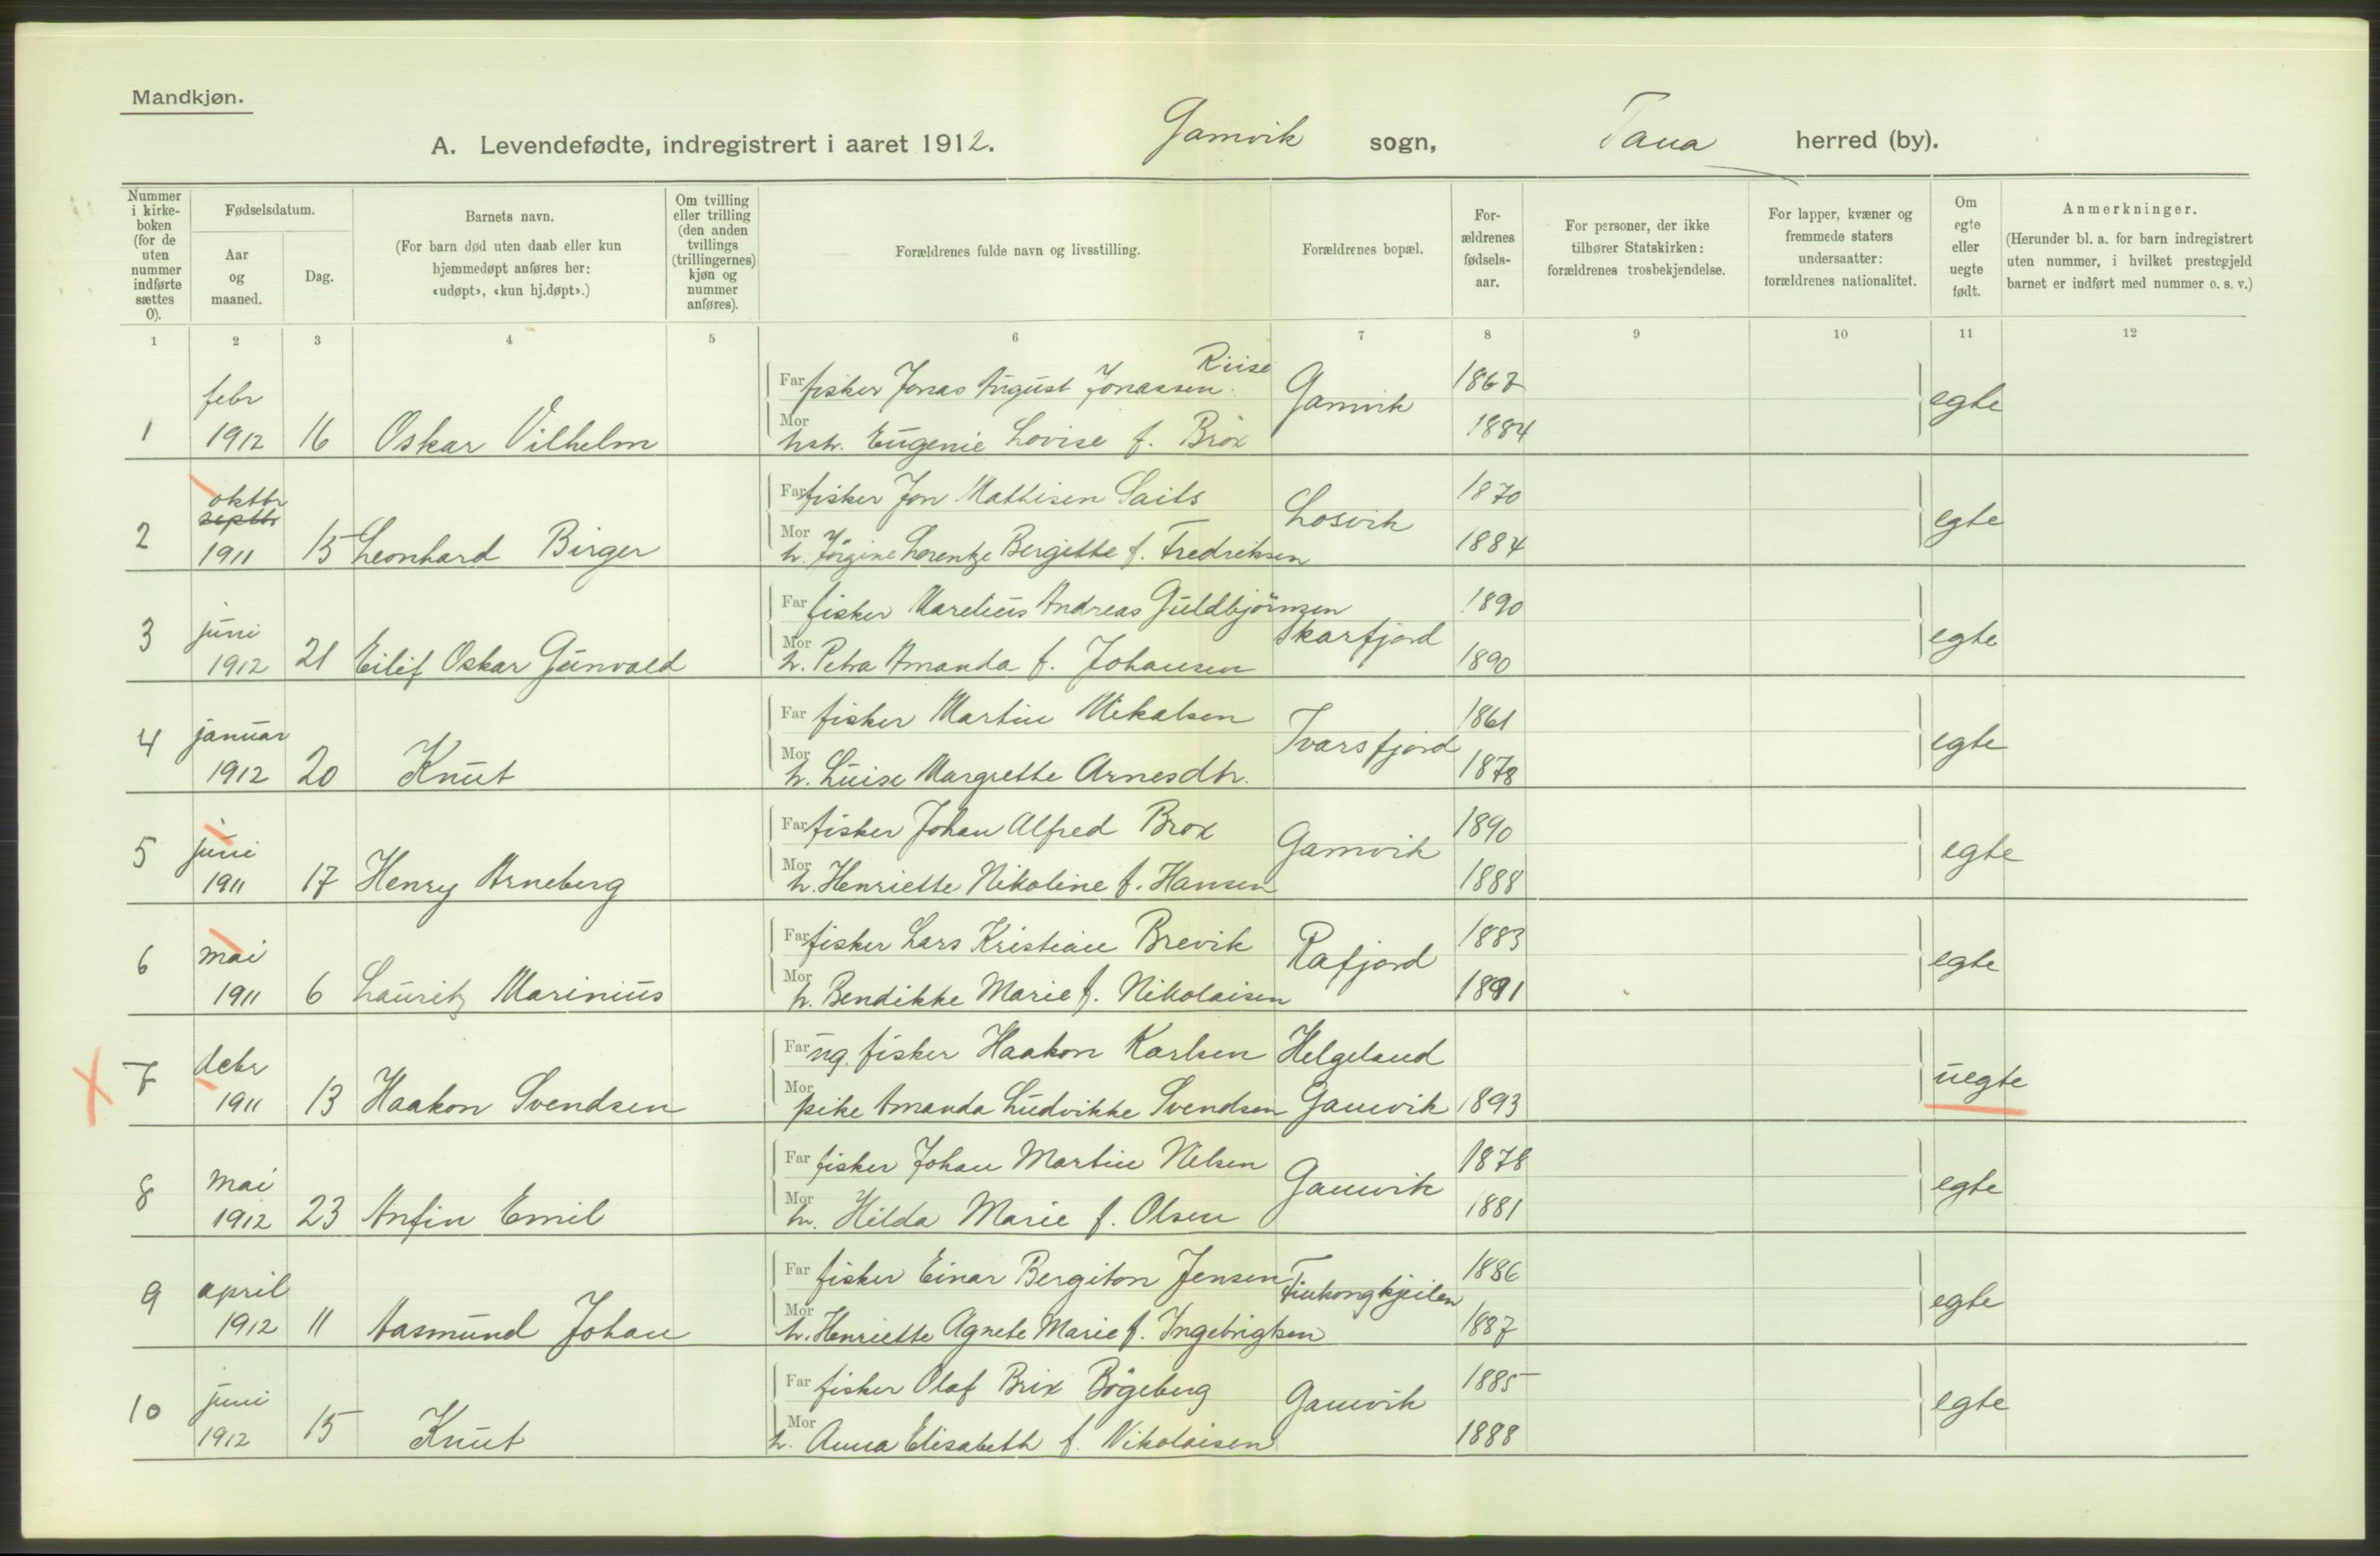 Mandkjøn.
A. Levendefødte, indregistrert i aaret 1912. Gamvik sogn, Tana herred (by).
Nummer i kirke-boken (for de uten nummer indførte sættes 0).
Fødselsdatum.
Aar og maaned.
Dag.
Barnets navn.
(For barn død uten daab eller kun hjemmedøpt anføres her: «udøpt», «kun hj.døpt».)
Om tvilling eller trilling (den anden tvillings (trillingernes) kjøn og nummer anføres).
Forældrenes fulde navn og livsstilling.
Forældrenes bopæl.
For-ældrenes fødsels-aar.
For personer, der ikke tilhører Statskirken: forældrenes trosbekjendelse.
For lapper, kvæner og fremmede staters undersaatter: forældrenes nationalitet.
Om egte eller uegte født.
Anmerkninger.
(Herunder bl. a. for barn indregistrert uten nummer, i hvilket prestegjeld barnet er indført med nummer o. s. v.)
1 2 3 4 5 6 7 8 9 10 11 12
Riise
febr Far fisker Jonas August Jonassen Gamvik 1867 egte
1 1912 16 Oskar Vilhelm Mor hstr. Eugenie Lovise f. Brox 1884
oktbr
septbr Far fisker Jon Mathisen Saits Losvik 1870 egte
2 1911 15 Leonhard Birger Mor h. Jörgine Lorentze Bergitte f. Fredriksen 1884
juni Far fisker Andreas Guldbjörnsen Skarfjord 1890 egte
3 1912 21 Eilif Oskar Gunvald Mor h. Petra Amanda f. Johansen 1890
januar Far fisker Martin Mikalsen Ivarsfjord 1861 egte
4 1912 20 Knut Mor h. Luise Margrethe Arnesdtr. 1878
juni Far fisker Johan Alfred Brox Gamvik 1890 egte
5 1911 17 Henry Arneberg Mor h. Henriette Nikoline f. Hansen 1888
mai Far fisker Lars Kristian Brevik Rafjord 1883 egte
6 1911 6 Lauritz Marinius Mor h. Bendikke Marie f. Nikolaisen 1891
debr Far ug. fisker Haakon Karlsen Helgeland uegte
7 1911 13 Haakon Svendsen Mor pike Amanda Ludvikke Svendsen Gamvik 1893
mai Far fisker Johan Martin Nilsen Gamvik 1878 egte
8 1912 23 Anfin Emil Mor h. Hilda Marie f. Olsen 1881
april Far fisker Einar Bergiton Jensen Finkongkjeilen 1886 egte
9 1912 11 Aasmund Johan Mor h. Henriette Agnete Marie f. Ingebrigtsen 1887
juni Far fisker Olaf Brix Bögeberg Gamvik 1885 egte
10 1912 15 Knut Mor h. Anna Elisabeth f. Nikolaisen 1888